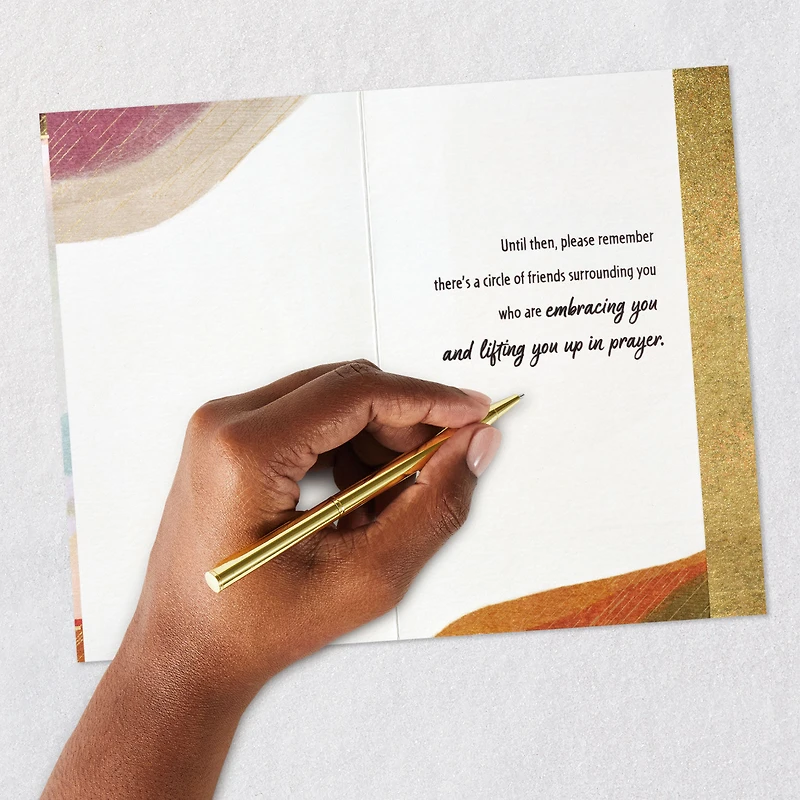 Until then, please remember
there's a circle of friends surrounding you
who are embracing you
and lifting you up in prayer.